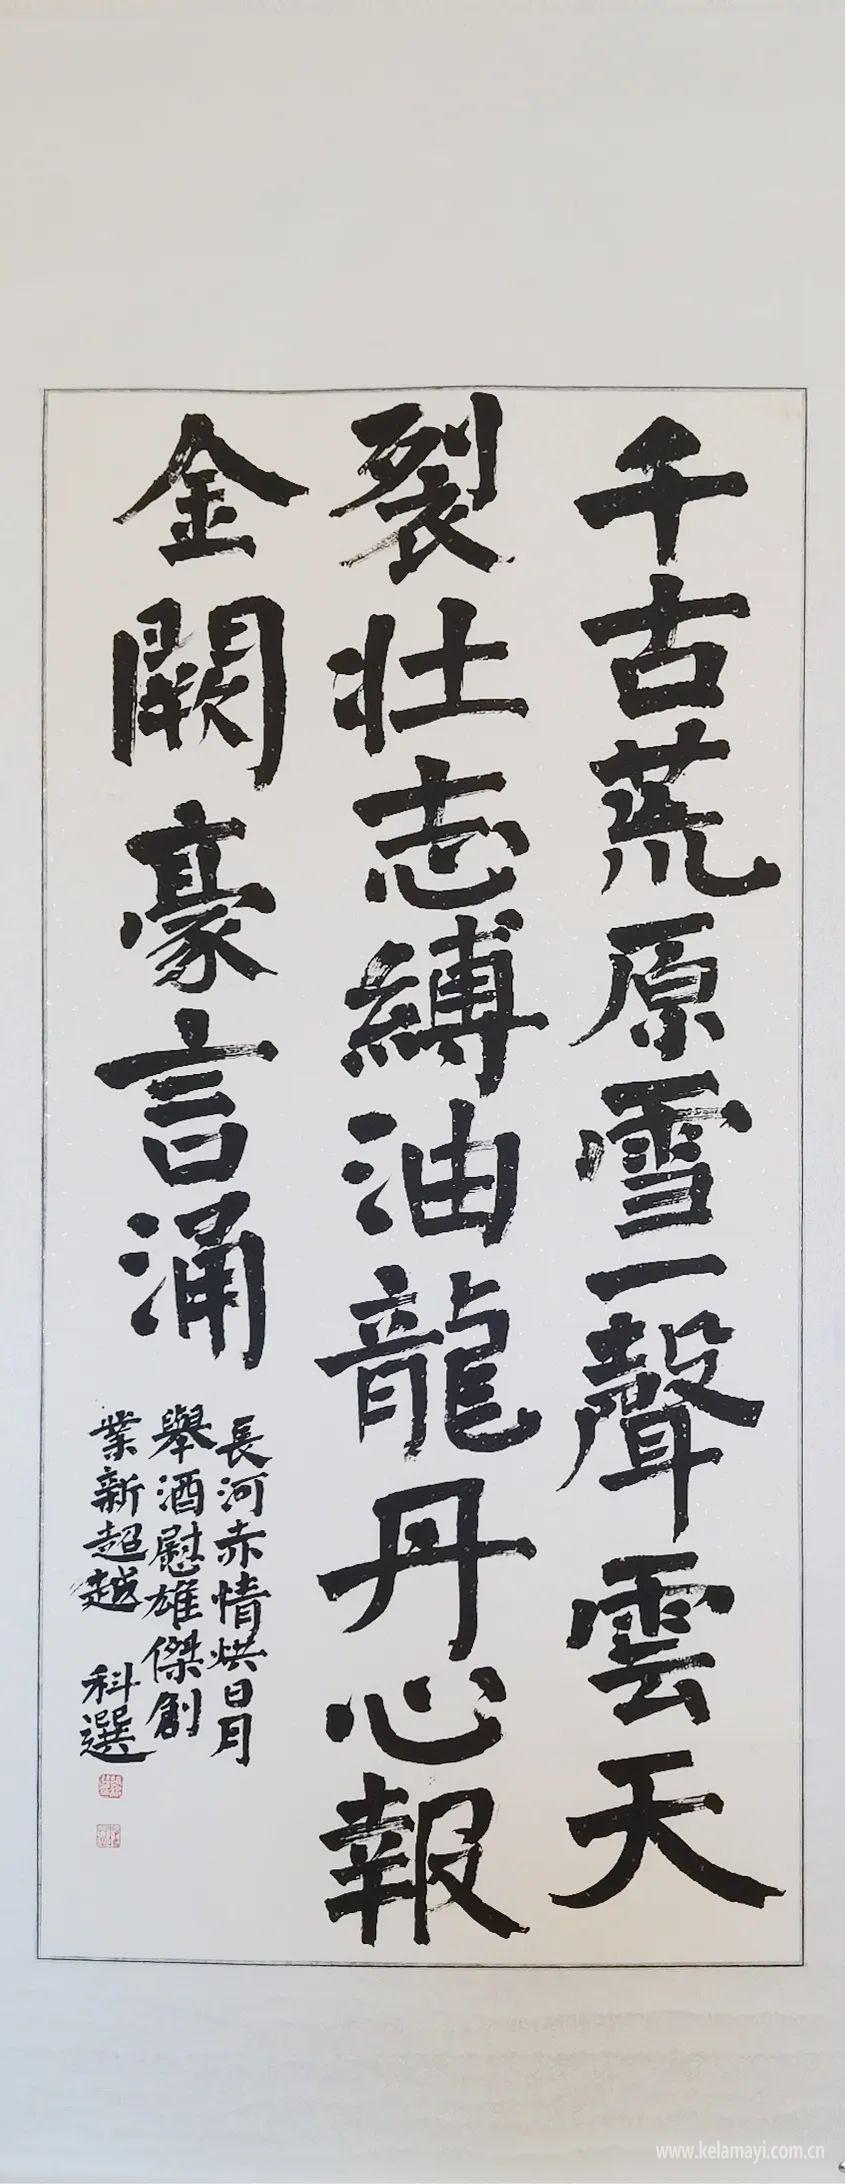 千古荒原雪一聲雲天
裂壯志縛油龍丹心報
金闕豪言涌
長河赤情烘日月
舉酒慰雄傑創
業新超越 科選
www.kelamayi.com.cn